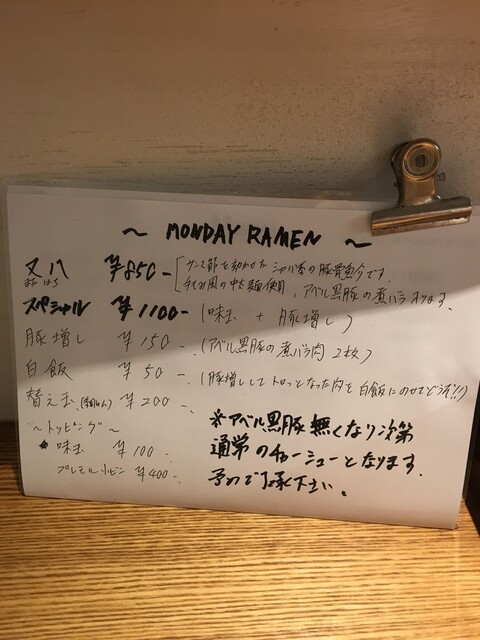 ～ MONDAY RAMEN ～
又八 ¥850- [サンマ節を効かせた シャバ系の豚骨魚介です。
またはち 中太麺使用、アベル黒豚の煮バラ入ります。
スペシャル ¥1100- (味玉 + 豚増し)
豚増し ¥150- (アベル黒豚の煮バラ肉 2枚)
白飯 ¥50- (豚増しして トロッとなった肉を白飯にのせてどうぞ!!)
替え玉 ¥200-
～トッピング～
味玉 ¥100-
¥400-
※アベル黒豚 無くなり次第
通常のチャーシューとなります。
予めご了承下さい。